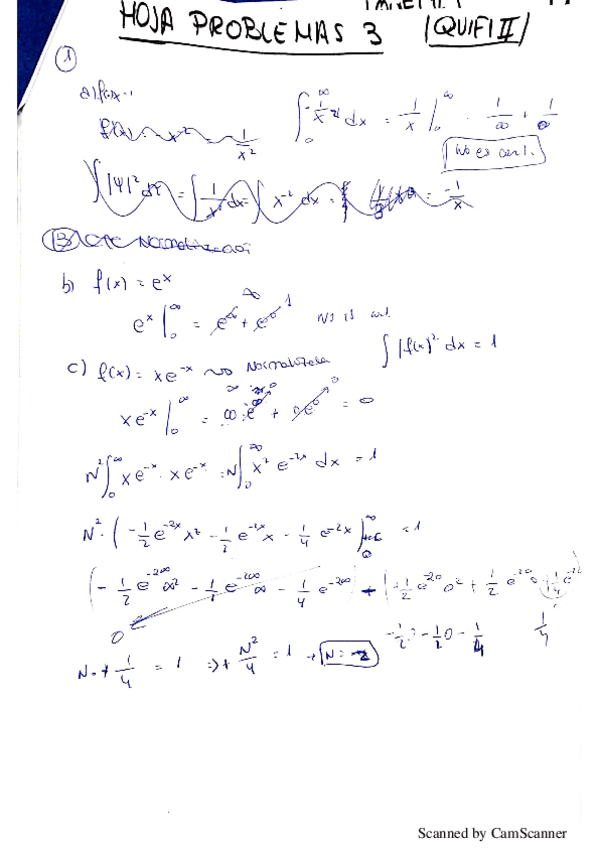 HOJA PROBLEMAS 3 (QUIFI II)
1
a) f(x) x⁻¹
∫₀^∞ dx = 1/x |₀^∞ 1/∞ + 1/0
No es
∫|Ψ|² = ∫ 1/x² dx = ∫ x⁻² dx = = -1/x
b) f(x) = eˣ
eˣ |₀^∞ = e^∞ + e⁰ No es
c) f(x) = xe⁻ˣ no Normalizada ∫|f(x)|² dx = 1
xe⁻ˣ |₀^∞ = ∞·e^-∞ + 0e⁰ = 0
N² ∫₀^∞ xe⁻ˣ · xe⁻ˣ = N ∫₀^∞ x² e⁻²ˣ dx = 1
N² · (-1/2 e⁻²ˣ x² - 1/2 e⁻²ˣ x - 1/4 e⁻²ˣ |₀^∞ = 1
(-1/2 e^-2∞ ∞² - 1/2 e^-2∞ ∞ - 1/4 e^-2∞) + (-1/2 e⁻²⁰ 0² + 1/2 e⁻²⁰
0 -1/2 = -1/2 0 - 1/4 1/4
N · + 1/4 = 1 => + N²/4 = 1 → N = 2
Scanned by CamScanner